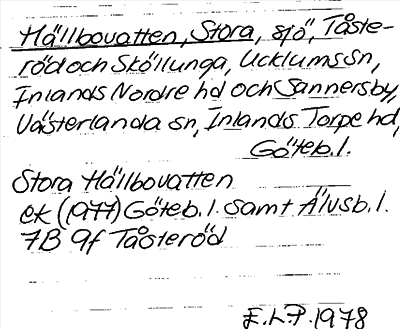 Hällbovatten, Stora, sjö, Tåste-
röd och Sköllunga, Ucklums sn,
Inlands Nordre hd och Sannersby,
Västerlanda sn, Inlands Torpe hd,
Göteb. l.
Stora Hällbovatten
ek (1977) Göteb. l. samt Älvsb. l.
7B 9f Tåsteröd
E.L.P. 1978